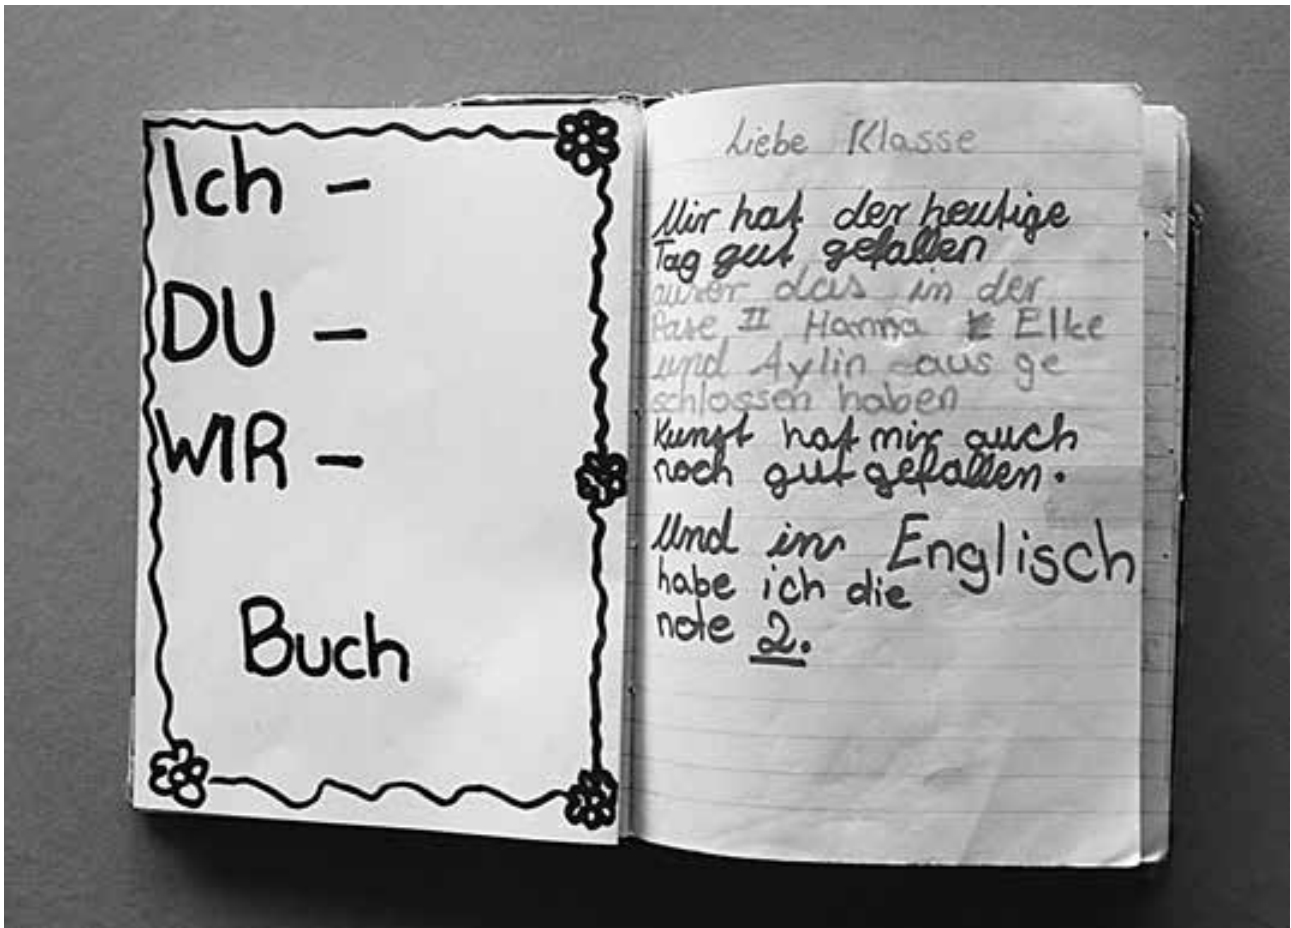 Ich -
DU -
WIR -
Buch
Liebe Klasse
Mir hat der heutige
Tag gut gefallen
auser das in der
Pase II Hanna Elke
und Aylin aus ge
schlossen haben
Kunst hat mir auch
noch gut gefallen.
Und in Englisch
habe ich die
note 2.